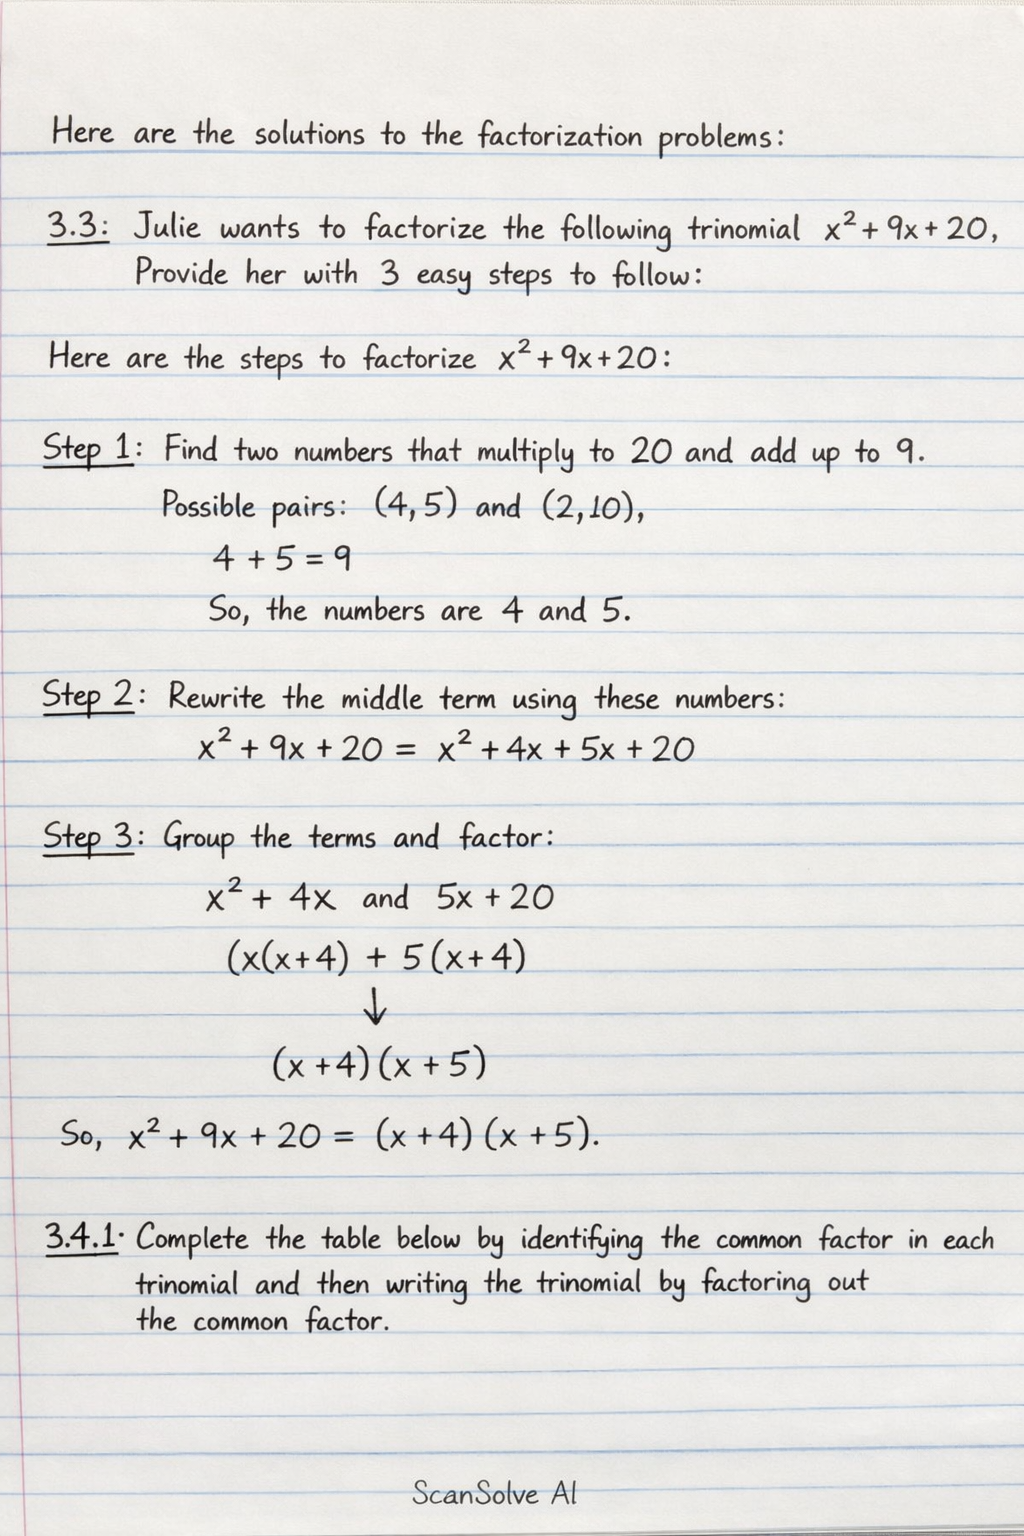 Here are the solutions to the factorization problems:
3.3: Julie wants to factorize the following trinomial x² + 9x + 20,
Provide her with 3 easy steps to follow:
Here are the steps to factorize x² + 9x + 20:
Step 1: Find two numbers that multiply to 20 and add up to 9.
Possible pairs: (4, 5) and (2, 10),
4 + 5 = 9
So, the numbers are 4 and 5.
Step 2: Rewrite the middle term using these numbers:
x² + 9x + 20 = x² + 4x + 5x + 20
Step 3: Group the terms and factor:
x² + 4x and 5x + 20
(x(x+4) + 5(x+4)
↓
(x+4)(x+5)
So, x² + 9x + 20 = (x+4)(x+5).
3.4.1· Complete the table below by identifying the common factor in each
trinomial and then writing the trinomial by factoring out
the common factor.
ScanSolve AI